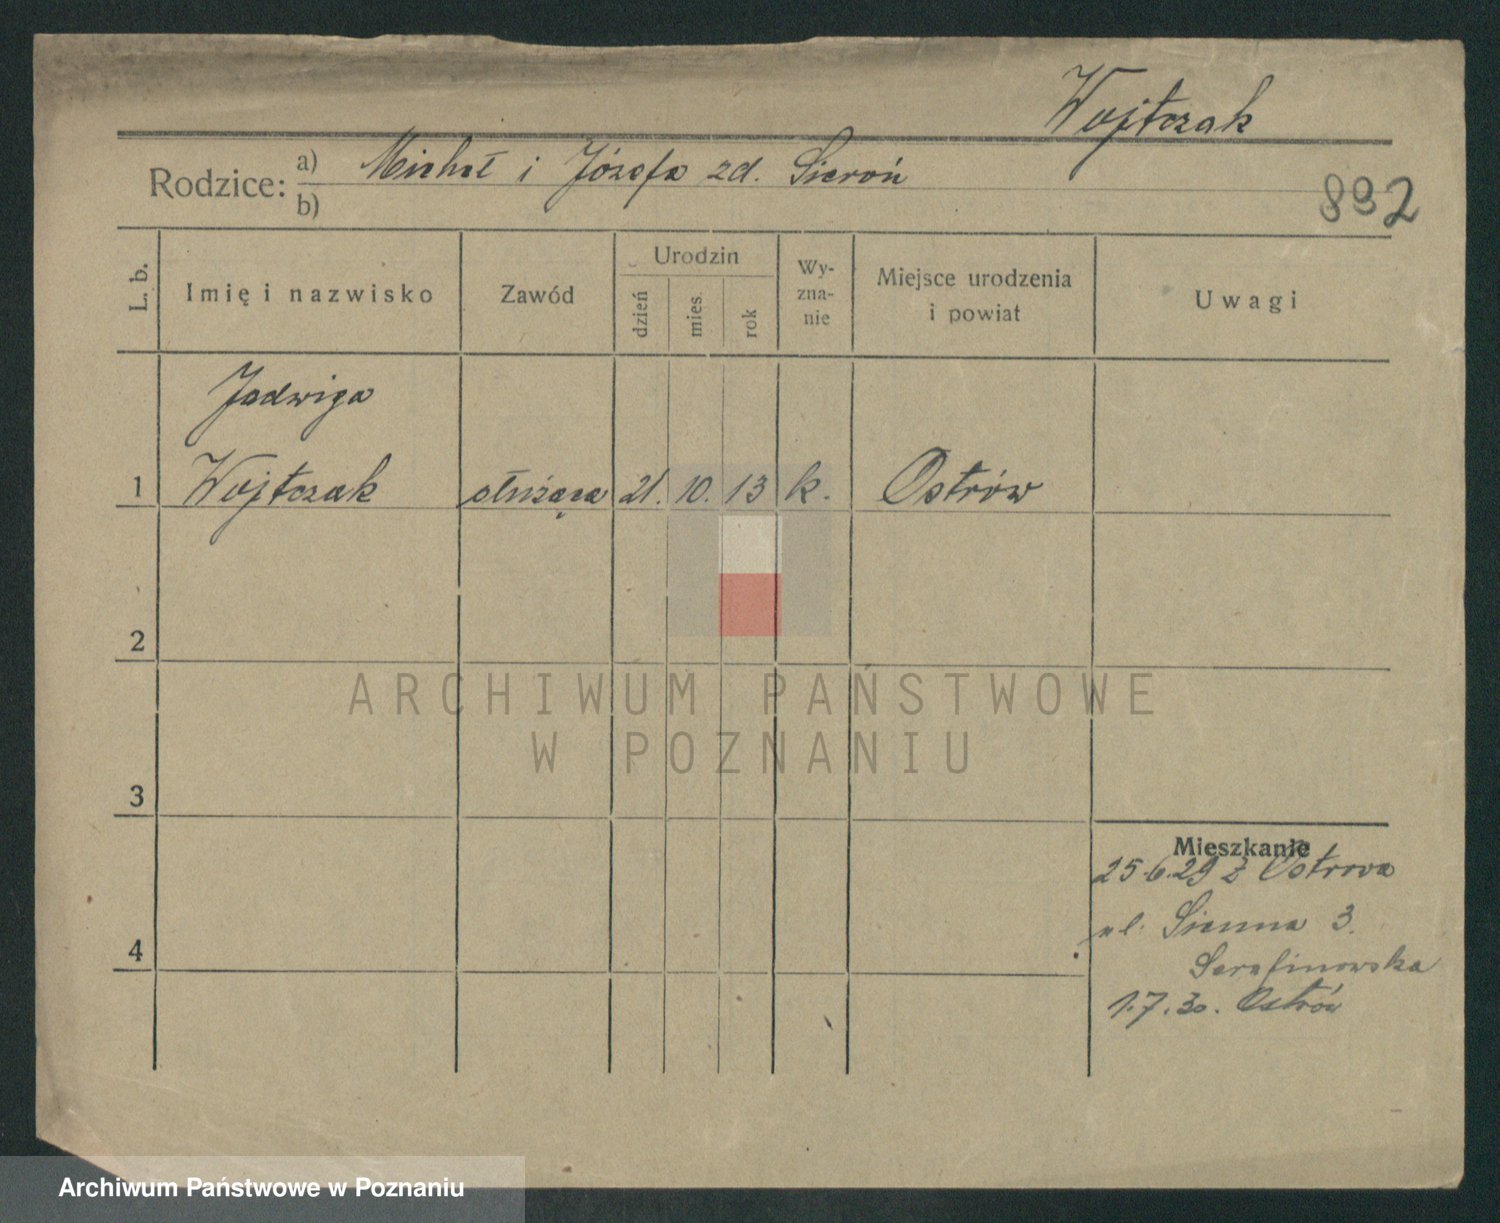 Wojtczak
Rodzice: a) Michał i Józefa zd. Sieroń
b)
892
L. b.
Imię i nazwisko
Zawód
Urodzin
dzień
mies.
rok
Wy-
zna-
nie
Miejsce urodzenia
i powiat
Uwagi
Jadwiga
1 Wojtczak służąca 21. 10. 13 k. Ostrów
2
3
4
Mieszkanie
25.6.29 z Ostrowa
ul. Sienna 3.
Serafinowska
1.7.30. Ostrów
ARCHIWUM PAŃSTWOWE
W POZNANIU
Archiwum Państwowe w Poznaniu